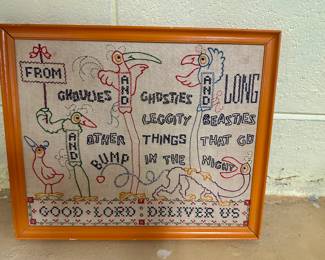 FROM
GHOULIES AND GHOSTIES AND LONG
LEGGITY BEASTIES
AND OTHER THINGS THAT GO
BUMP IN THE NIGHT
GOOD LORD DELIVER US